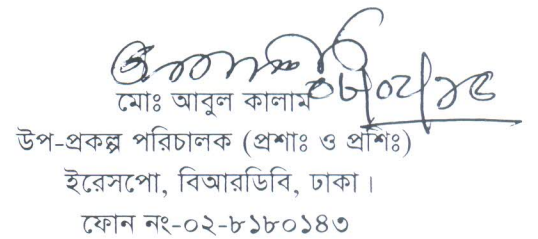 ০৮/০২/১৫
মোঃ আবুল কালাম
উপ-প্রকল্প পরিচালক (প্রশাঃ ও প্রশিঃ)
ইরেসপো, বিআরডিবি, ঢাকা।
ফোন নং-০২-৮১৮০১৪৩